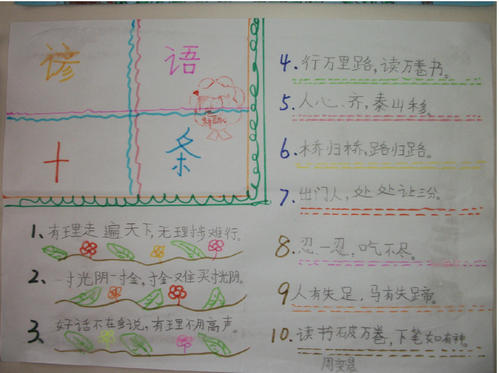 谚语
十条
1、有理走遍天下,无理寸步难行。
2、一寸光阴一寸金,寸金难买寸光阴。
3、好话不在多说,有理不用高声。
4.行万里路,读万卷书。
5.人心齐,泰山移。
6.桥归桥,路归路。
7.出门人,处处让三分。
8.忍一忍,吃不尽。
9人有失足,马有失蹄。
10.读书破万卷,下笔如有神。